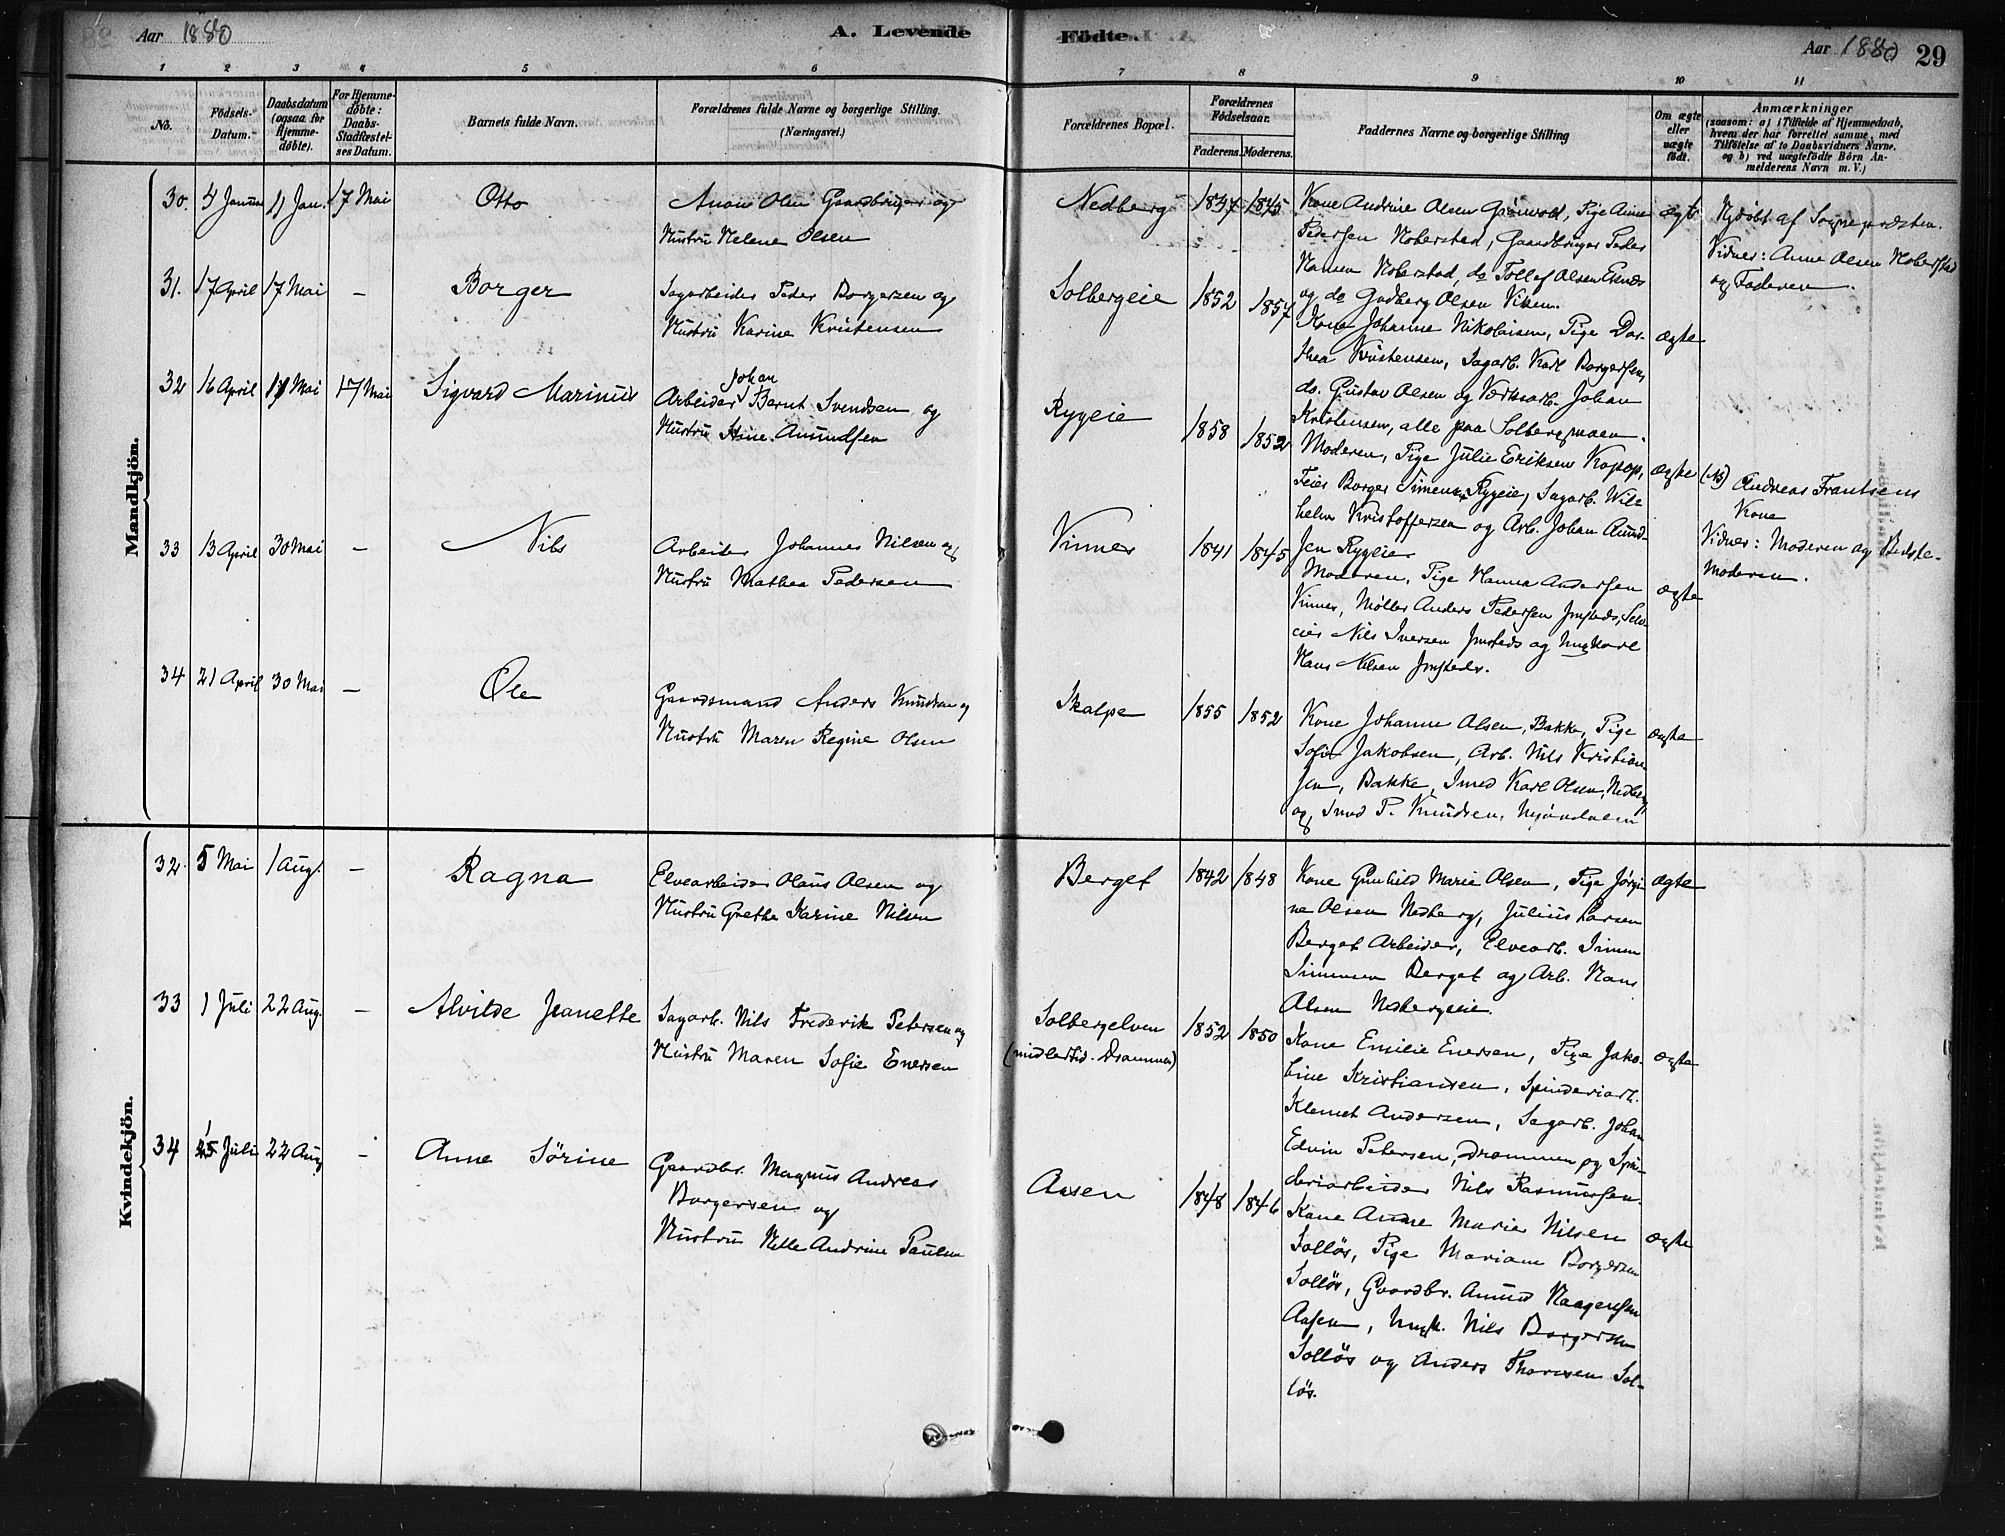 Aar 1880
A. Levende
Födte.
Aar 1880 29
1 2 3 4 5 6 7 8 9 10 11
No.
Födsels-Datum.
Daabsdatum (ogsaa for Hjemme-döbte).
For Hjemme-döbte: Daabs-Stadfæstel-ses Datum.
Barnets fulde Navn.
Forældrenes fulde Navne og borgerlige Stilling.
(Næringsvei.)
Forældrenes Bopæl.
Forældrenes Födselsaar.
Faderens. Moderens.
Faddernes Navne og borgerlige Stilling
Om ægte eller uægte födt.
Anmærkninger
(saasom: a) i Tilfælde af Hjemmedaab,
hvem der har forrettet samme, med
Tilföielse af to Daabsvidners Navne.
og b) ved uægtefödte Börn An-
melderens Navn m. V.)
Mandkjön.
30. 4 Januar 11 Jan. 17 Mai Otto
Olsen Gaardbruger og
Hustru Helene Olsen
Nedberg 1847 1845
Kone Andrine Olsen Grønvold, Pige Anne
Pedersen Hoberstad, Gaardbruger Peder
Hansen Hoberstad, do Tollef Olsen
og do Gudberg Olsen Viken.
ægte
Hjdøbt af Sogneprdsten.
Vidner: Anne Olsen Hoberstad
og Faderen.
31. 17 April 17 Mai — Borger
Sagarbeider Peder Borgersen og
Hustru Karine Kristensen
Solbergeie 1852 1857
Kone Johanne Nikolaisen, Pige Dor-
thea Kristensen, Sagarb. Karl Borgersen,
do. Gustav Olsen og Værksarb. Johan
Kristensen, alle paa Solbergmoen.
ægte
32 16 April 17 Mai 17 Mai Sigvard Marinius
Johan
Arbeider Bernt Svendsen og
Hustru Stine Amundsen
Rygeie 1858 1852
Moderen, Pige Julie Eriksen Kopop,
Feier Borger Simens. Rygeie, Sagarb. Wil-
helm Kristoffersen og Arb. Johan Amund-
sen Rygeie
ægte
Andreas Frantsens
Kone
Vidner: Moderen og Bedste-
moderen.
33 13 April 30 Mai — Nils
Arbeider Johannes Nilsen og
Hustru Mathea Pedersen
Vinnes 1841 1845
Moderen, Pige Hanna Andersen
Vinnes, Møller Anders Pedersen Jmsteds, Selv-
eier Nils Iversen Jmsteds og Ungkarl
Hans Nilsen Jmsteds.
ægte
34 21 April 30 Mai — Ole
Gaardmand Anders Knudsen og
Hustru Maren Regine Olsen
Skalpe 1855 1852
Kone Johanne Olsen, Bakke, Pige
Sofie Jakobsen, Arb. Nils Kristian-
sen, Bakke, Smed Karl Olsen, Nedberg
og Smed P. Knudsen, Mjøndalen
ægte
Kvindekjön.
32. 5 Mai 1 Aug. — Ragna
Elvearbeider Olaus Olsen og
Hustru Grethe Karine Nilsen
Berget 1842 1848
Kone Gunhild Marie Olsen, Pige Jørgi-
ne Olsen Nedberg, Julius Larsen
Berget Arbeider, Elvearb. Simen
Simensen Berget og Arb. Hans
Olsen Nedbergeie.
ægte
33 1 Juli 22 Aug. — Alvilde Jeanette
Sagarb. Nils Frederik Petersen og
Hustru Maren Sofie Enersen
Solbergelven
(midlertid. Drammen)
1852 1850
Kone Emilie Enersen, Pige Jako-
bine Kristiansen, Spinderiarb.
Klemet Andersen, Sagarb. Johan
Edvin Petersen, Drammen og Spin-
deriarbeider Nils Rasmussen.
ægte
34 15 Juli 22 Aug — Anne Sørine
Gaardbr. Magnus Andreas
Borgersen og
Hustru Nelle Andrine Paulsen
Aasen 1848 1846
Kone Anne Marie Nilsen
Solløs, Pige Mariane Borgersen
Solløs, Gaardbr. Amund Haagensen
Aasen, Ungk. Nils Borgersen
Solløs og Anders Thoresen Sol-
løs.
ægte